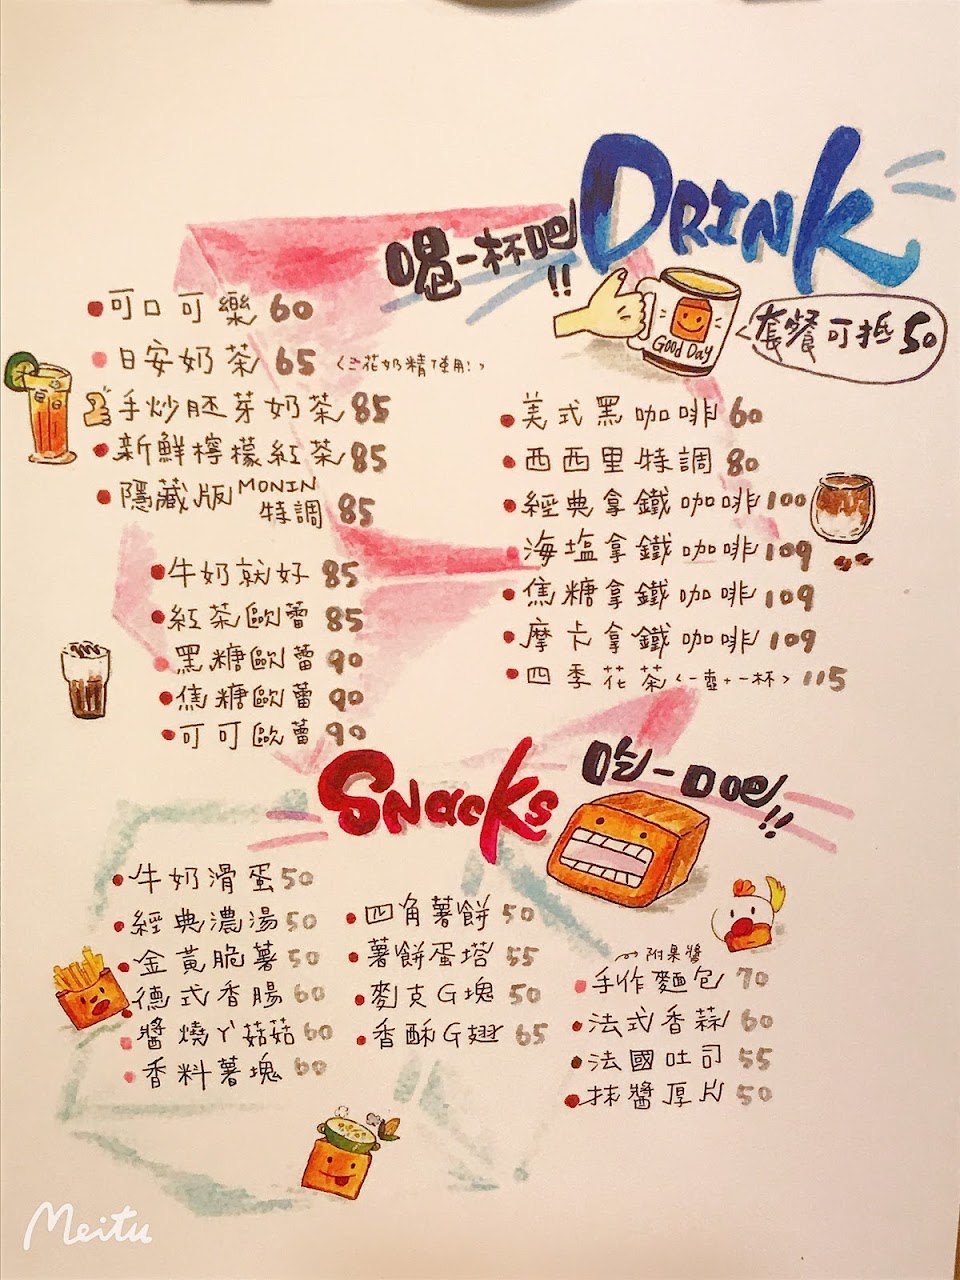 DRINK
喝一杯吧!!
Good Day
套餐可抵50
可口可樂 60
日安奶茶 65 (三花奶精使用!)
手炒胚芽奶茶 85
新鮮檸檬紅茶 85
隱藏版MONIN
特調 85
牛奶就好 85
紅茶歐蕾 85
黑糖歐蕾 90
焦糖歐蕾 90
可可歐蕾 90
美式黑咖啡 60
西西里特調 80
經典拿鐵咖啡 100
海塩拿鐵咖啡 109
焦糖拿鐵咖啡 109
摩卡拿鐵咖啡 109
四季花茶(一壺+一杯) 115
SNacKs
吃一口吧!!
牛奶滑蛋 50
經典濃湯 50
金黃脆薯 50
德式香腸 60
醬燒ㄚ菇菇 60
香料薯塊 60
四角薯餅 50
薯餅蛋塔 55
麥克G塊 50
香酥G翅 65
附果醬
手作麵包 70
法式香蒜 60
法國吐司 55
抹醬厚片 50
Meitu